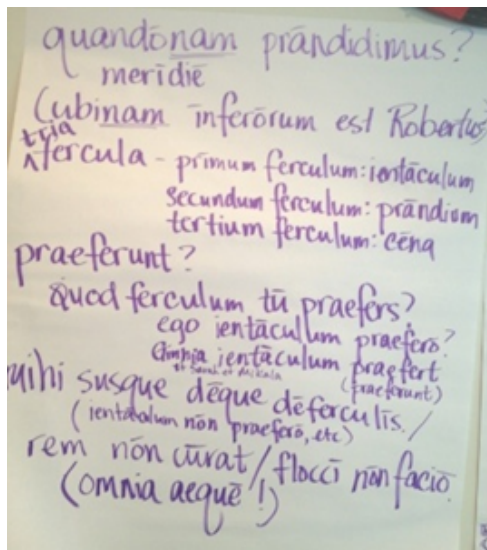 quandōnam prāndidimus?
merīdiē
(ubinam īnferōrum est Robertus?
tria
^ fercula - prīmum ferculum: ientāculum
secundum ferculum: prāndium
tertium ferculum: cēna
praeferunt?
Quod ferculum tū praefers?
ego ientācullum praeferō?
ientāculum praefert
(praeferunt)
mihi susque dēque dēferculīs. /
(ientācolum nōn praeferō, etc)
rem nōn cūrat / floccī nōn faciō.
(omnia aequē!)